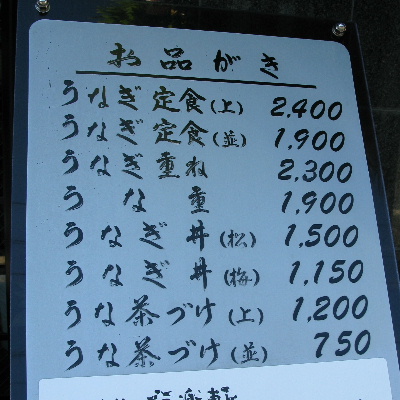 お品がき
うなぎ定食(上) 2,400
うなぎ定食(並) 1,900
うなぎ重ね 2,300
うな重 1,900
うなぎ丼(松) 1,500
うなぎ丼(梅) 1,150
うな茶づけ(上) 1,200
うな茶づけ(並) 750